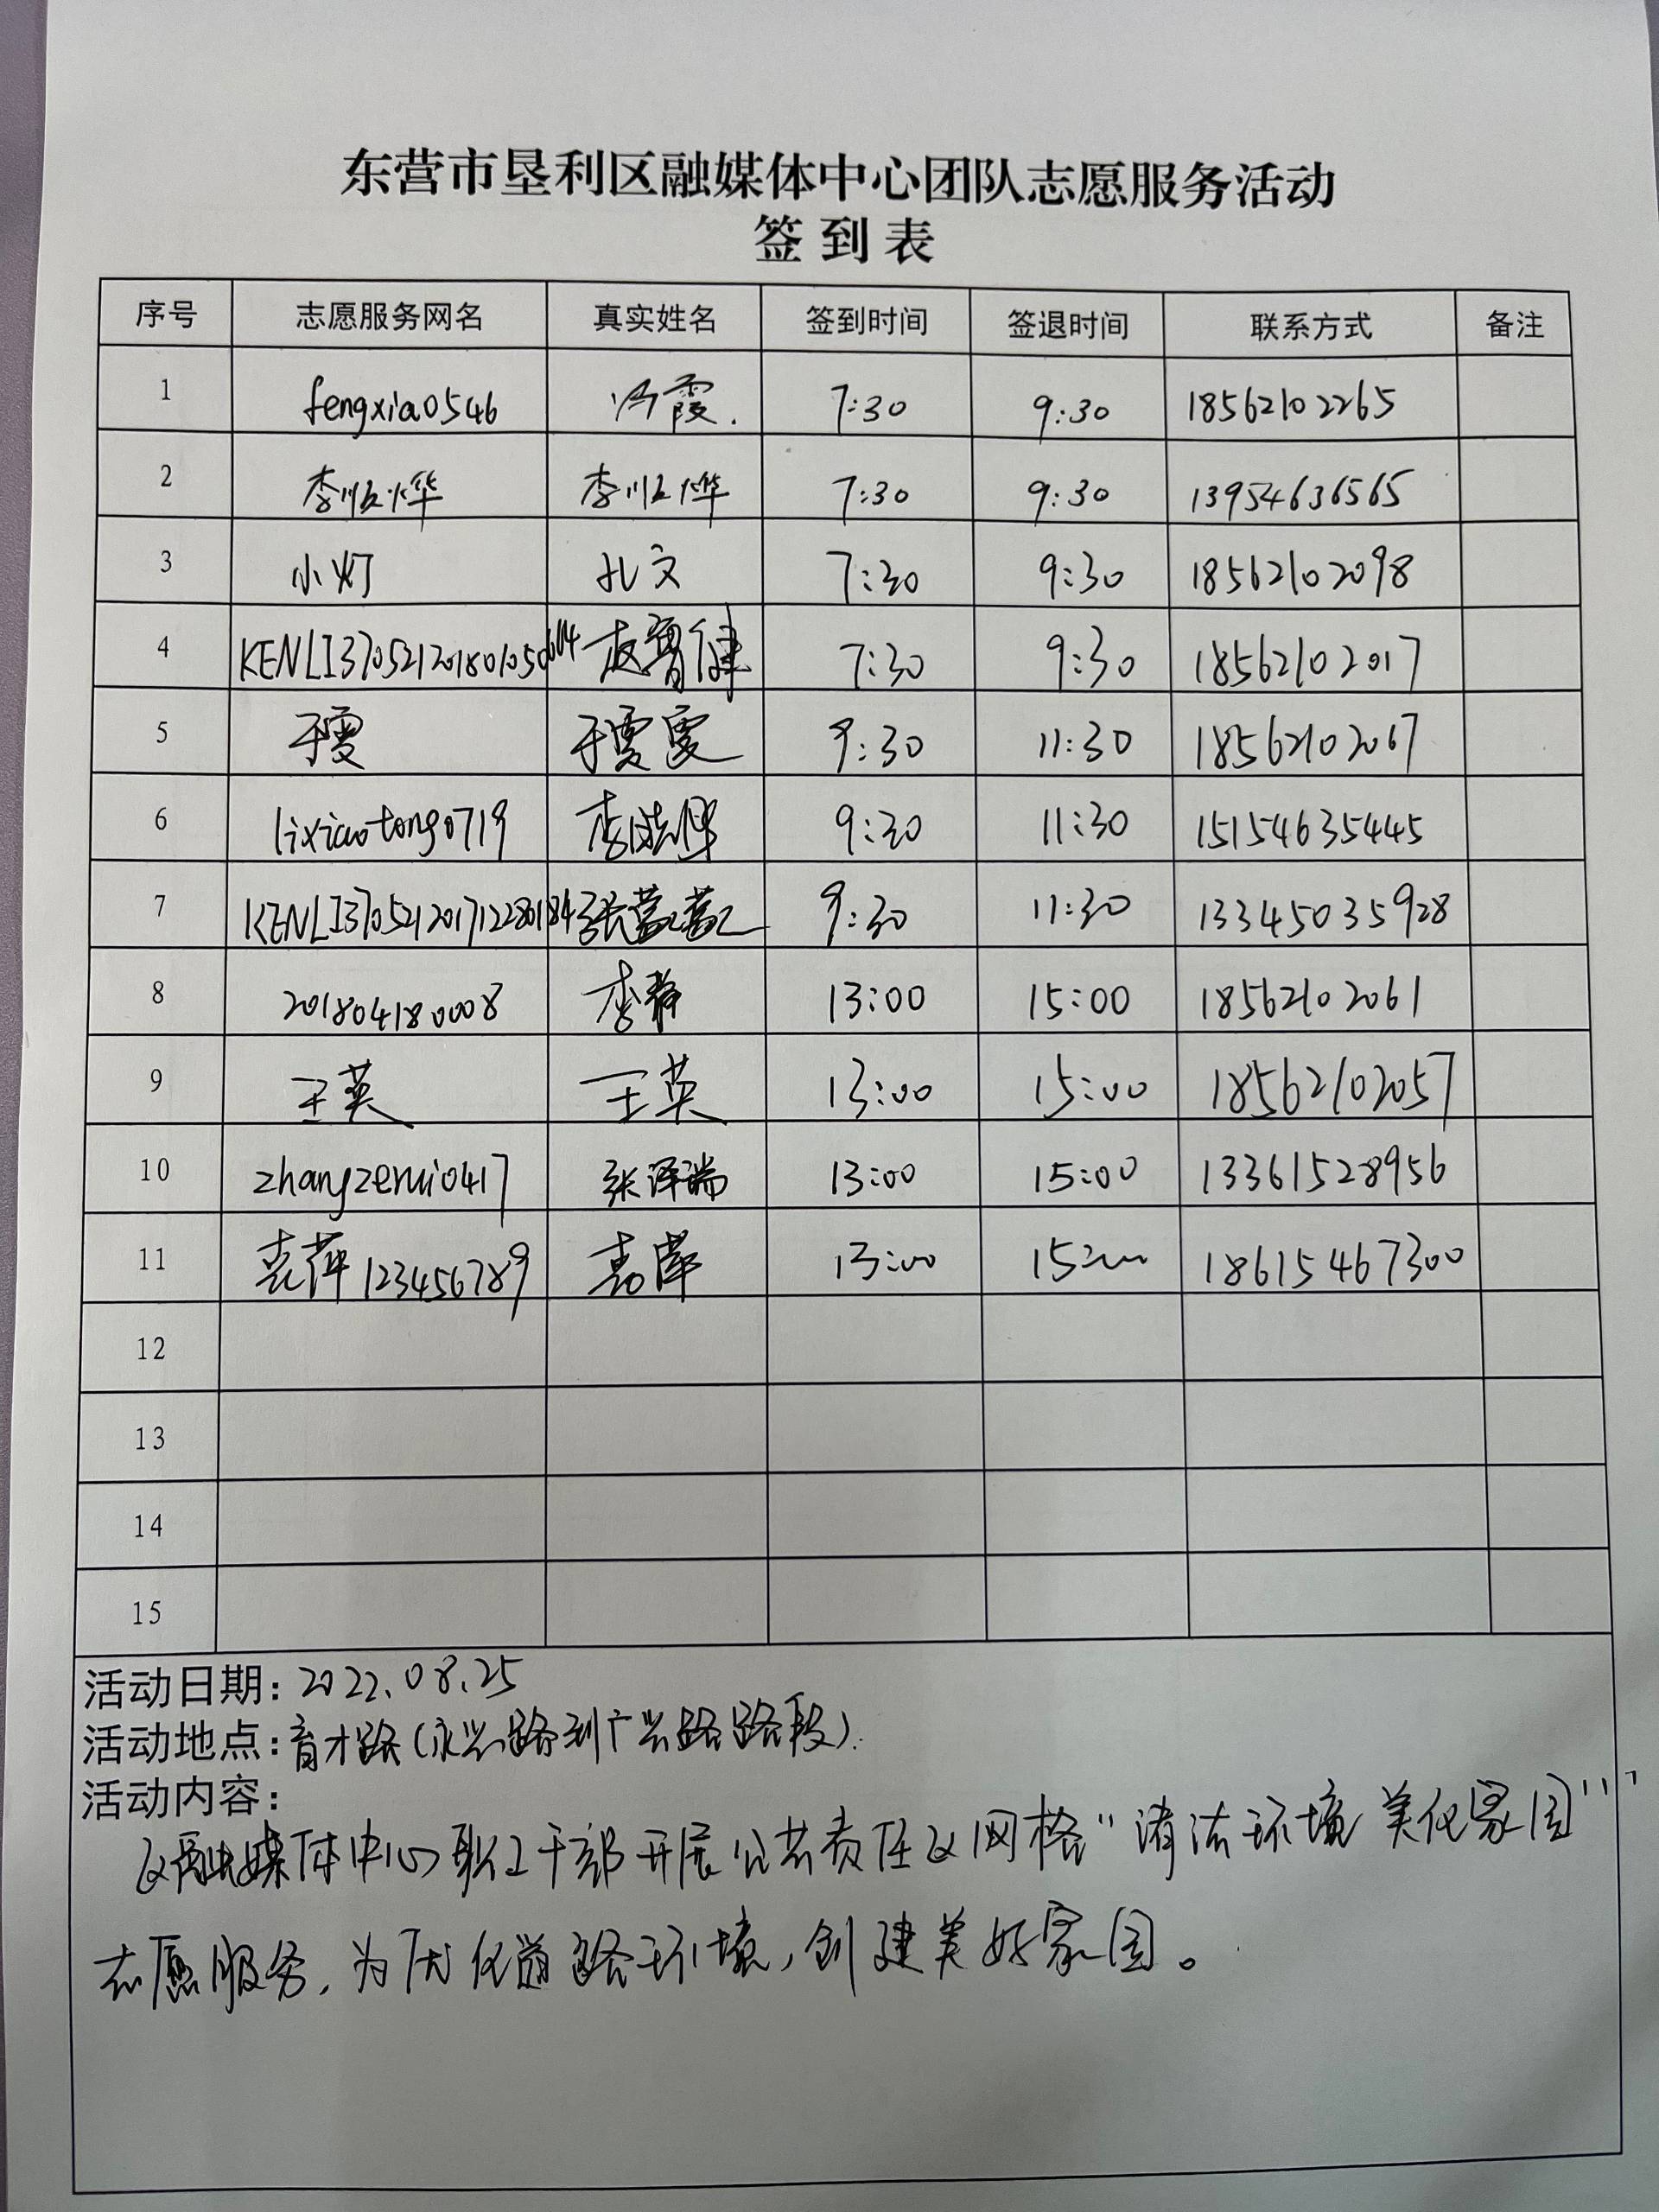 东营市垦利区融媒体中心团队志愿服务活动
签到表
序号 志愿服务网名 真实姓名 签到时间 签退时间 联系方式 备注
1 fengxia0546 冯霞. 7:30 9:30 18562102265
2 李顺烨 李顺烨 7:30 9:30 13954636565
3 小灯 孔文 7:30 9:30 18562102098
4 KENLI3705212018010500614 7:30 9:30 18562102017
5 于雯 于雯雯 9:30 11:30 18562102067
6 lixiaotong0719 李晓彤 9:30 11:30 15154635445
7 KENLI370521201712280184 张菡菡 9:30 11:30 13345035928
8 201804180008 李静 13:00 15:00 18562102061
9 王英 王英 13:00 15:00 18562102057
10 zhangzerui0417 张泽瑞 13:00 15:00 13361528956
11 袁萍123456789 袁萍 13:00 15:00 18615467300
12
13
14
15
活动日期: 2022.08.25
活动地点: 育才路(永兴路到广兴路路段).
活动内容:
区融媒体中心职工干部开展公共责任区网格“清洁环境 美化家园”
志愿服务,为优化道路环境,创建美好家园。